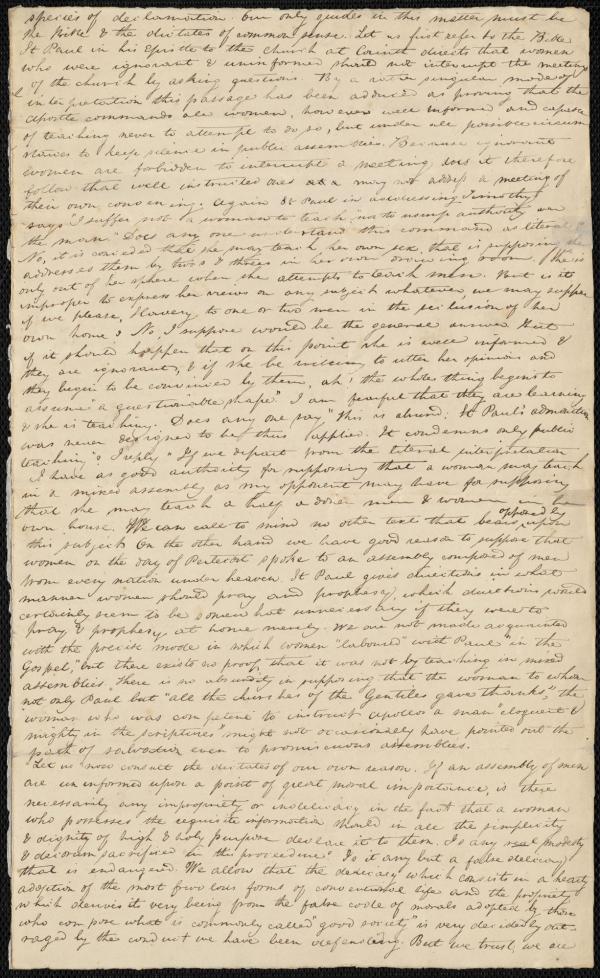 species of declamation. Our only guides in this matter must be
the Bible & the dictates of common sense. Let us first refer to the Bible
St Paul in his Epistle to the church at Corinth directs that women
who were ignorant & uninformed should not interrupt the meetings
of the church by asking questions. By a rather singular mode of
interpretation this passage has been adduced as proving that the
apostle commands all women, however well informed and capable
of teaching never to attempt to do so, but under all possible circum
stances to keep silence in public assemblies. Because ignorant
women are forbidden to interrupt a meeting does it therefore
follow that well instructed ones may not address a meeting of
their own convening. Again St Paul in addressing Timothy
says "I suffer not a woman to teach, nor to usurp authority over
the man." Does any one understand this command as literal?
No, it is conceded that she may teach her own sex, that is supposing she
addresses them by twos & threes in her own drawing room. She is
only out of her sphere when she attempts to teach men. But is it
improper to express her views on any subject whatever we may suppose
if we please, Slavery to one or two men in the seclusion of her
own home? No, I suppose would be the general answer. But
if it should happen that on this point she is well informed &
they are ignorant, & if she be willing to utter her opinions and
they begin to be convinced by them, ah! the whole thing begins to
assume "a questionable shape." I am fearful that they are learning
& she is teaching. Does any one say "this is absurd; St Paul's admonition
was never designed to be thus applied. It condemns only public
teaching"? I reply "If we depart from the literal interpretation
I have as good authority for supposing that a woman may teach
in a mixed assembly as my opponent may have for supposing
that she may teach a half a dozen men & women in her
own house. We can call to mind no other text that bears opposedly upon
this subject. On the other hand we have good reason to suppose that
women on the day of Pentecost spoke to an assembly composed of men
from every nation under heaven. St Paul gives directions in what
manner women should pray and prophesy, which directions would
certainly seem to be somewhat unnecessary if they were to
pray & prophesy at home merely. We are not made acquainted
with the precise mode in which women "laboured" with Paul "in the
Gospel," but there exists no proof that it was not by teaching in mixed
assemblies. There is no absurdity in supposing that the woman to whom
not only Paul but "all the churches of the Gentiles gave thanks," the
woman who was competent to instruct Apollos a man "eloquent &
mighty in the scriptures might not occasionally have pointed out the
path of salvation even to promiscuous assemblies.
Let us now consult the dictates of our own reason. If an assembly of men
are uninformed upon a point of great moral importance, is there
necessarily any impropriety or indelicacy in the fact that a woman
who possesses the requisite information should in all the simplicity
& dignity of high & holy purpose declare it to them. Is any real modesty
& decorum sacrificed in this procedure? Is it any but a false delicacy
that is endangered. We allow that the delicacy which consists in a hearty
adoption of the most frivolous forms of conventional life and the propriety
which derives its very being from the false code of morals adopted by those
who compose what is commonly called "good society" is very decidedly out-
raged by the conduct we have been defending. But we trust, we are